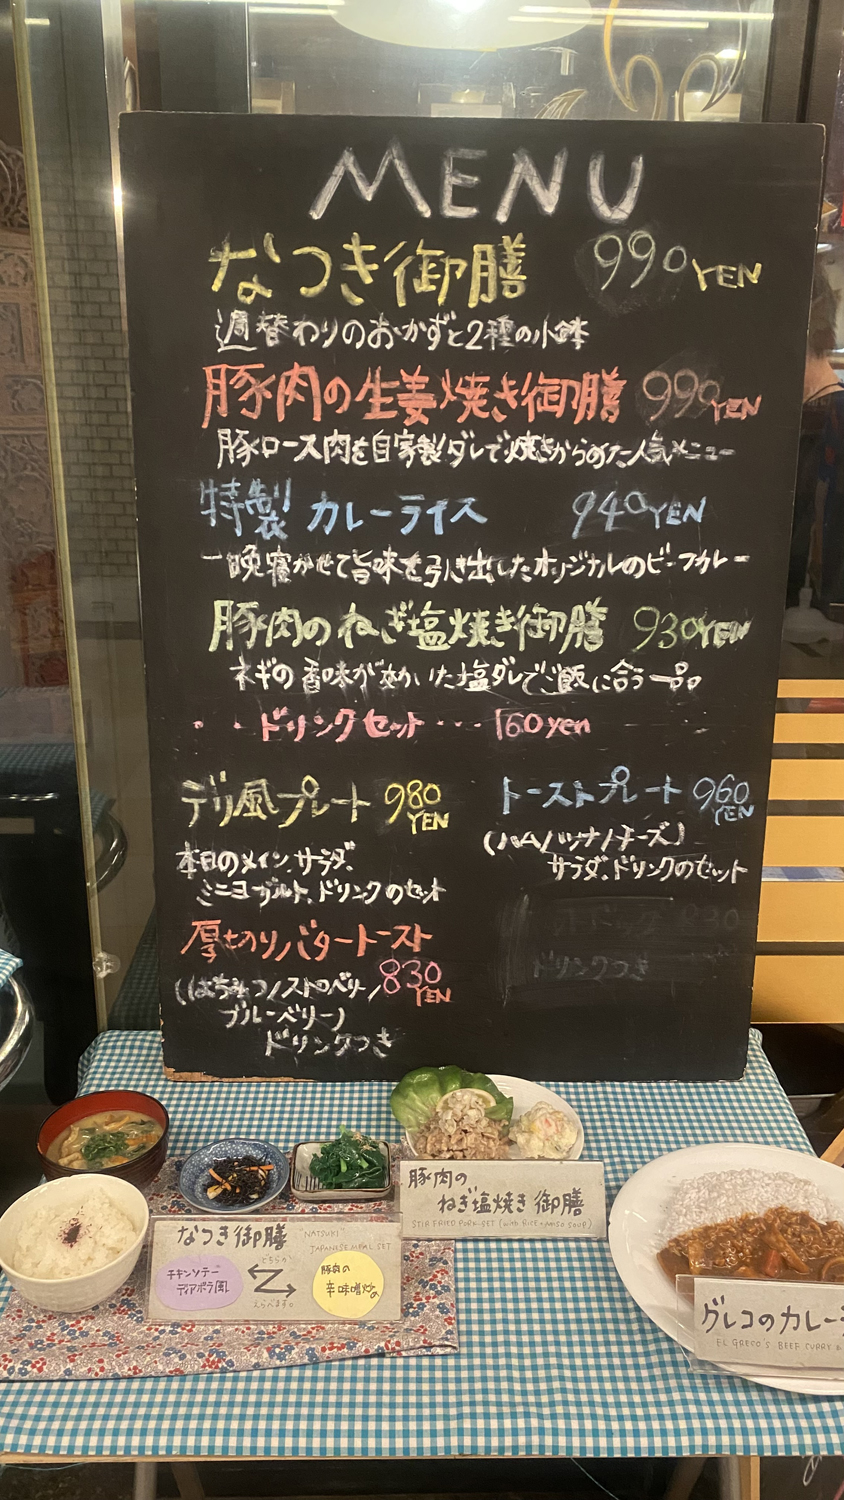 MENU
なつき御膳 990YEN
週替わりのおかずと2種の小鉢
豚肉の生姜焼き御膳 990YEN
豚ロース肉を自家製ダレで焼きからめた人気メニュー
特製 カレーライス 940YEN
一晩寝かせて旨味を引き出したオリジナルのビーフカレー
豚肉のねぎ塩焼き御膳 930YEN
ネギの香味が効いた塩ダレでご飯に合う一品
・・ドリンクセット・・・160yen
デリ風プレート 980YEN
本日のメイン、サラダ、
ミニヨーグルト、ドリンクのセット
厚切りバタートースト
830YEN
(はちみつ/ストロベリー/
ブルーベリー)
ドリンクつき
トーストプレート 960YEN
(ハム/ツナ/チーズ)
サラダ、ドリンクのセット
ドリンクつき
豚肉の
ねぎ塩焼き 御膳
STIR FRIED PORK SET (with RICE + MISO SOUP)
なつき御膳
"NATSUKI"
JAPANESE MEAL SET
チキンソテー
ディアボラ風
どちらか
えらべます。
豚肉の
辛味噌炒め
グレコのカレー
EL GRECO'S BEEF CURRY